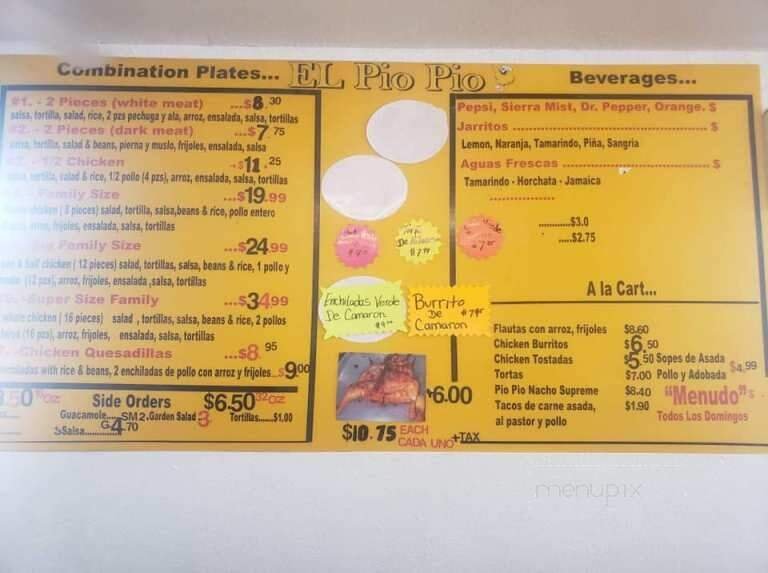 Combination Plates...
#1. - 2 Pieces (white meat) ...$8.30
salsa, tortilla, salad, rice, 2 pzs pechuga y ala, arroz, ensalada, salsa, tortillas
#2. - 2 Pieces (dark meat) ...$7.75
salsa, tortilla, salad & beans, pierna y muslo, frijoles, ensalada, salsa
1/2 Chicken ...$11.25
salsa, tortilla, salad & rice, 1/2 pollo (4 pzs), arroz, ensalada, salsa, tortillas
Family Size ...$19.99
chicken ( 8 pieces) salad, tortilla, salsa,beans & rice, pollo entero
arroz, frijoles, ensalada, salsa, tortillas
Family Size ...$24.99
& half chicken ( 12 pieces) salad, tortillas, salsa, beans & rice, 1 pollo y
(12 pzs), arroz, frijoles, ensalada ,salsa, tortillas
-Super Size Family ...$34.99
chicken ( 16 pieces) salad , tortillas, salsa, beans & rice, 2 pollos
(16 pzs), arroz, frijoles, ensalada, salsa, tortillas
-Chicken Quesadillas ...$8.95
enchiladas with rice & beans, 2 enchiladas de pollo con arroz y frijoles...$9.00
.50 16oz
Side Orders $6.50 32oz
Guacamole......SM 2. Garden Salad 3 Tortillas......$1.00
Salsa......... G 4.70
EL Pio Pio
De
$7.99
Enchiladas Verde
De Camaron
Burrito
De
Camaron
+6.00
$10.75 EACH
CADA UNO +TAX
Beverages...
Pepsi, Sierra Mist, Dr. Pepper, Orange. $
Jarritos ........ $
Lemon, Naranja, Tamarindo, Piña, Sangria
Aguas Frescas ........ $
Tamarindo - Horchata - Jamaica
............$3.0
.....$2.75
A la Cart...
Flautas con arroz, frijoles $8.60
Chicken Burritos $6.50
Chicken Tostadas $5.50 Sopes de Asada
Tortas $7.00 Pollo y Adobada $4.99
Pio Pio Nacho Supreme $8.40 "Menudo" $
Tacos de carne asada, $1.90 Todos Los Domingos
al pastor y pollo
menupix